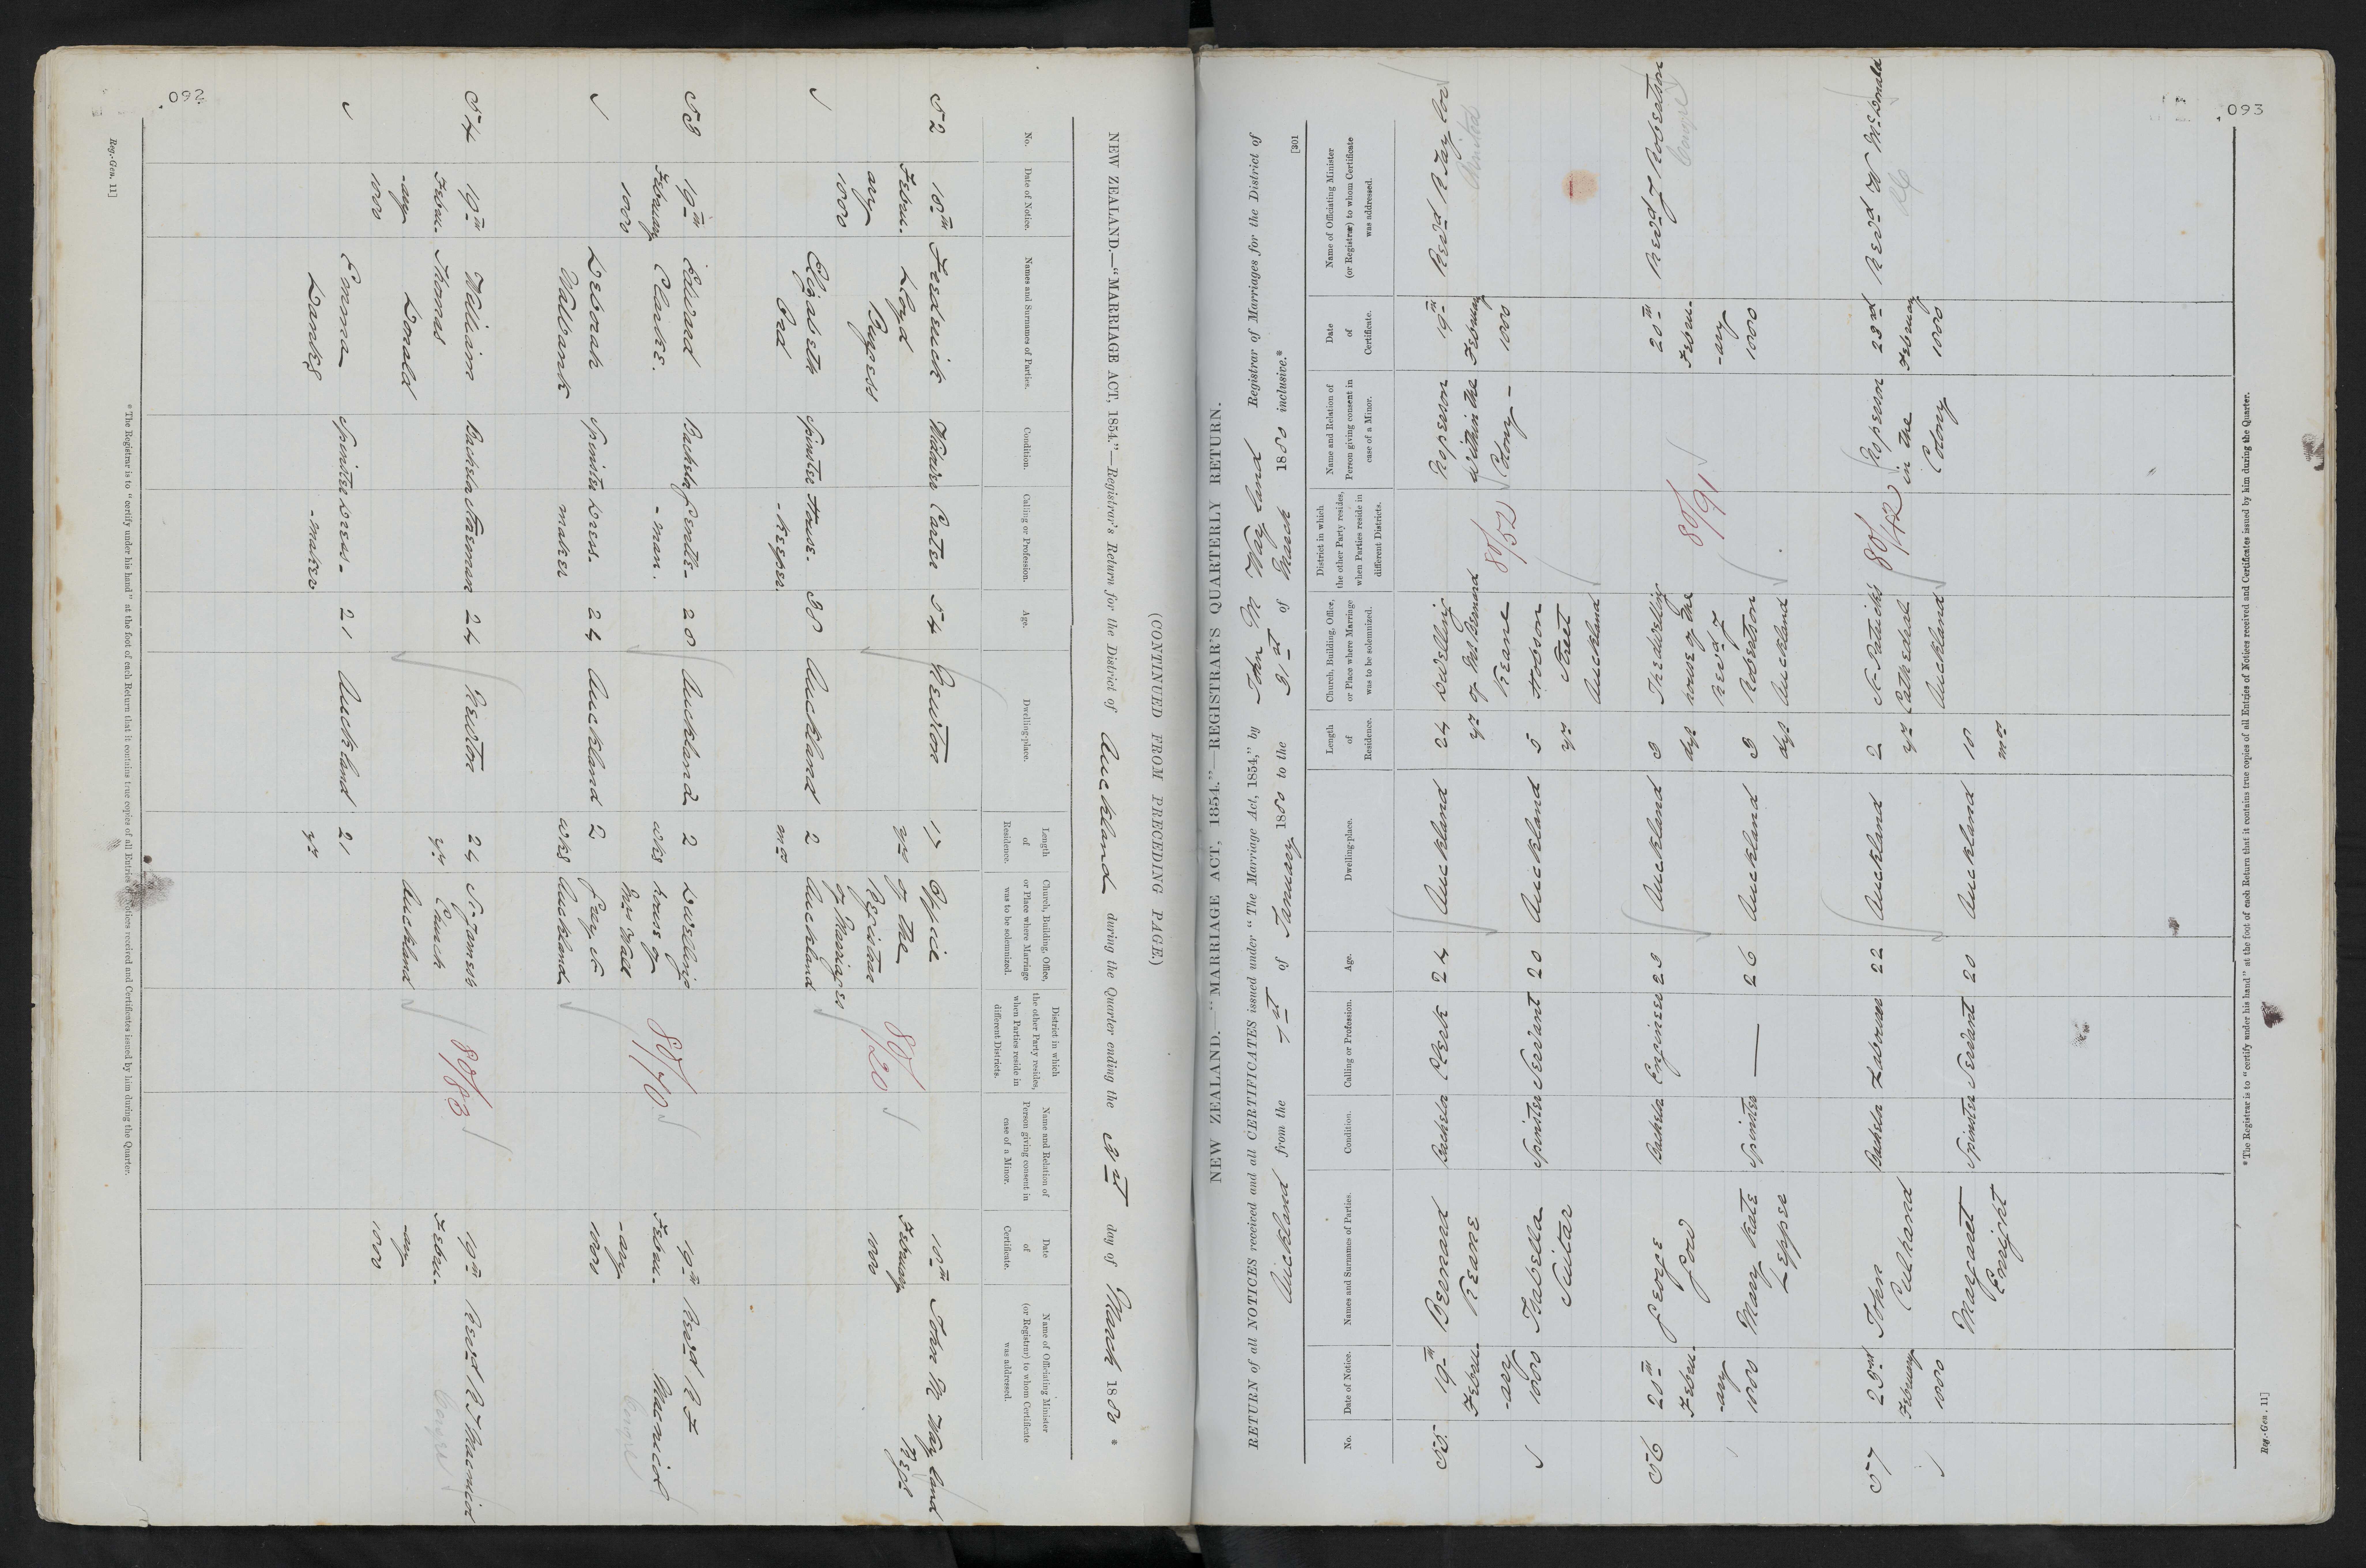 092
(CONTINUED FROM PRECEDING PAGE.)
NEW ZEALAND.—"MARRIAGE ACT, 1854."—Registrar's Return for the District of Auckland during the Quarter ending the 31st day of March 1880 *
No.
Date of Notice.
Names and Surnames of Parties.
Condition.
Calling or Profession.
Age.
Dwelling-place.
Length
of
Residence.
Church, Building, Office,
or Place where Marriage
was to be solemnized.
District in which
the other Party resides,
when Parties reside in
different Districts.
Name and Relation of
Person giving consent in
case of a Minor.
Date
of
Certificate.
Name of Officiating Minister
(or Registrar) to whom Certificate
was addressed.
52
18th
Febru-
ary
1880
Frederick
Lloyd
Burgess
Widower
Carter
54
Newton
17
yrs
Office
of the
Registrar
of Marriages
Auckland
80/20
18th
February
1880
John M Wayland
Regr
Elizabeth
Card
Spinster
House-
-keeper.
38
Auckland
2
mos
53
19th
February
1880
Edward
Clarke.
Bachelor
Gentle-
-man.
28
Auckland
2
wks
Dwelling
house of
Mrs Wall
Grey St
Auckland
80/70
19th
Febru-
-ary
1880
Revd R F
Macnicol
Deborah
Wallbank
Spinster
Dress-
maker
24
Auckland
2
wks
54
19th
Febru-
-ary
1880
William
Thomas
Donald
Bachelor
24
Newton
24
yrs
St James's
Church
Auckland
80/83
19th
Febru-
ary
1880
Revd R F Macnicol
Emma
Danks
Spinster
Dress-
-maker
21
Auckland
21
yrs
* The Registrar is to "certify under his hand" at the foot of each Return that it contains true copies of all Entries of Notices received and Certificates issued by him during the Quarter.
Reg.-Gen. 11]
093
[301
NEW ZEALAND.—"MARRIAGE ACT, 1854."—REGISTRAR'S QUARTERLY RETURN.
RETURN of all NOTICES received and all CERTIFICATES issued under "The Marriage Act, 1854," by John M Wayland Registrar of Marriages for the District of
Auckland from the 1st of January 1880 to the 31st of March 1880 inclusive.*
No.
Date of Notice.
Names and Surnames of Parties.
Condition.
Calling or Profession.
Age.
Dwelling-place.
Length
of
Residence.
Church, Building, Office,
or Place where Marriage
was to be solemnized.
District in which
the other Party resides,
when Parties reside in
different Districts.
Name and Relation of
Person giving consent in
case of a Minor.
Date
of
Certificate.
Name of Officiating Minister
(or Registrar) to whom Certificate
was addressed.
55
19th
Febru-
-ary
1880
Bernard
Keane
Bachelor
Clerk
24
Auckland
24
yrs
Dwelling
of Mr Bernard
Keane
Hobson
Street
Auckland
80/52
No person
within the
Colony -
19th
February
1880
Revd R Taylor
Isabella
Spinster
Servant
20
Auckland
5
yrs
56
20th
Febru-
-ary
1880
George
Gow
Bachelor
Engineer
29
Auckland
3
dys
The dwelling
house of the
Revd J
Robertson
Auckland
80/91
20th
Febru-
-ary
1880
Revd J Robertson
Mary Kate
Lepper
Spinster
—
26
Auckland
3
dys
57
23rd
February
1880
John
Culhand
Bachelor
Labourer
22
Auckland
2
yrs
St Patrick's
Cathedral
Auckland
80/42
No person
in the
Colony
23rd
February
1880
Revd W McDonald
RC
Margaret
Enright
Spinster
Servant
20
Auckland
10
mos
* The Registrar is to "certify under his hand" at the foot of each Return that it contains true copies of all Entries of Notices received and Certificates issued by him during the Quarter.
Reg.-Gen. 11]